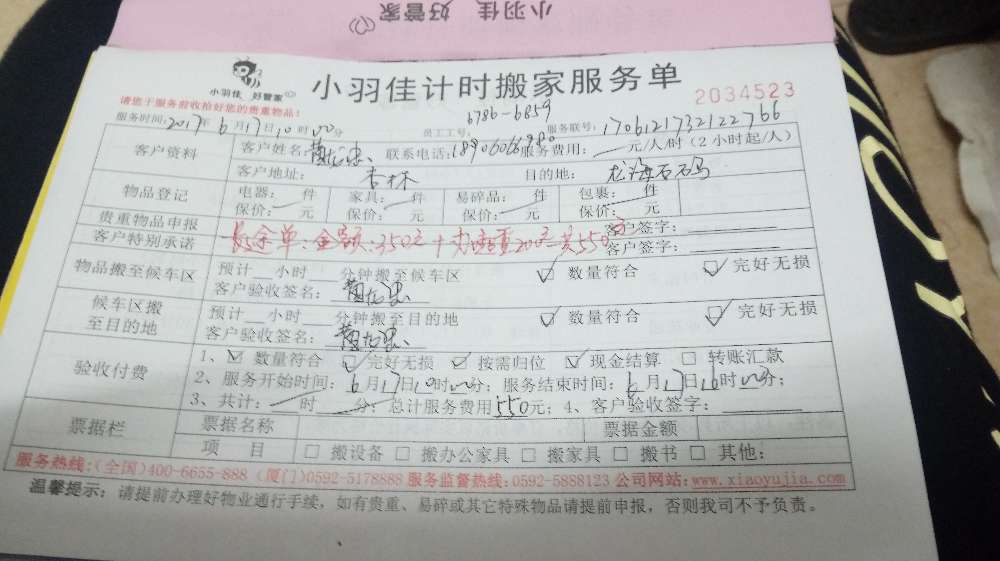 小羽佳 好管家
小羽佳 好管家
小羽佳计时搬家服务单
2034523
请您于服务前收拾好您的贵重物品!
6786-6859
服务时间:2017年6月17日10时00分 员工工号: 服务联号:1706121732122766
客户资料 客户姓名: 联系电话: 服务费用: 元/人/时(2小时起/人)
客户地址: 杏林 目的地: 龙海石码
物品登记 电器: 件 家具: 件 易碎品: 件 包裹: 件
保价: 元 保价: 元 保价: 元 保价: 元
贵重物品申报 客户签字:
客户特别承诺 长途单:金额:350元+办进费200元共550元 客户签字:
物品搬至候车区 预计 小时 分钟搬至候车区 ☑ 数量符合 ☑ 完好无损
客户验收签名:
候车区搬至目的地 预计 小时 分钟搬至目的地 ☑ 数量符合 ☑ 完好无损
客户验收签名:
验收付费 1、☑ 数量符合 ☑ 完好无损 ☑ 按需归位 ☑ 现金结算 □ 转账汇款
2、服务开始时间:6月17日10时00分;服务结束时间:6月17日16时00分;
3、共计: 时 分;总计服务费用550元;4、客户验收签字:
票据栏 票据名称 票据金额
项 目 □ 搬设备 □ 搬办公家具 □ 搬家具 □ 搬书 □ 其他:
服务热线:(全国)400-6655-888 (厦门)0592-5178888 服务监督热线:0592-5888123 公司网站:www.xiaoyujia.com
温馨提示:请提前办理好物业通行手续,如有贵重、易碎或其它特殊物品请提前申报,否则我司不予负责。